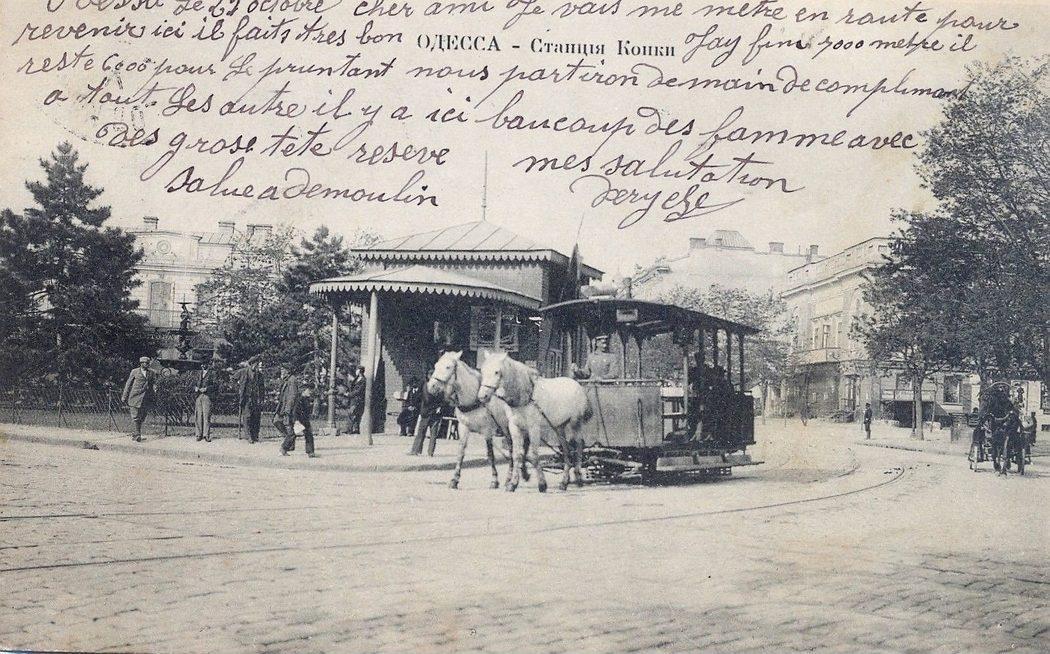 Odessa Le 29 octobre cher ami Je vais me metre en route pour
revenir ici il faits tres bon ОДЕССА - Станція Конки Jay fini 7000 metre il
reste 6000 pour Le pruntant nous partiron demain de compliment
a tout Les autre il y a ici baucoup des famme avec
des grose tete reseve mes salutation
Salue a demoulin Derycke